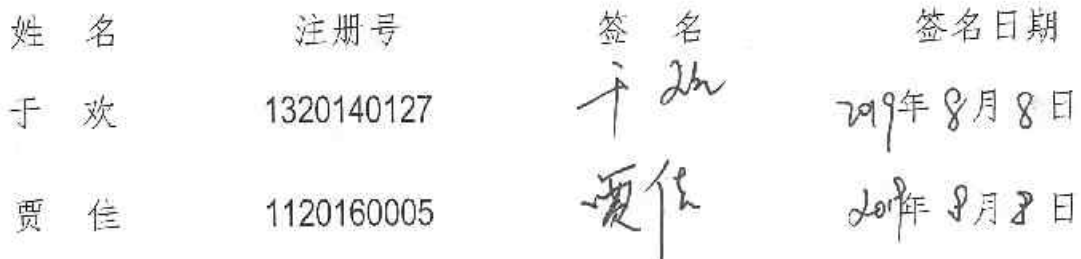 姓 名 注册号 签 名 签名日期
于 欢 1320140127 于欢 2019年8月8日
贾 佳 1120160005 贾佳 2019年8月8日